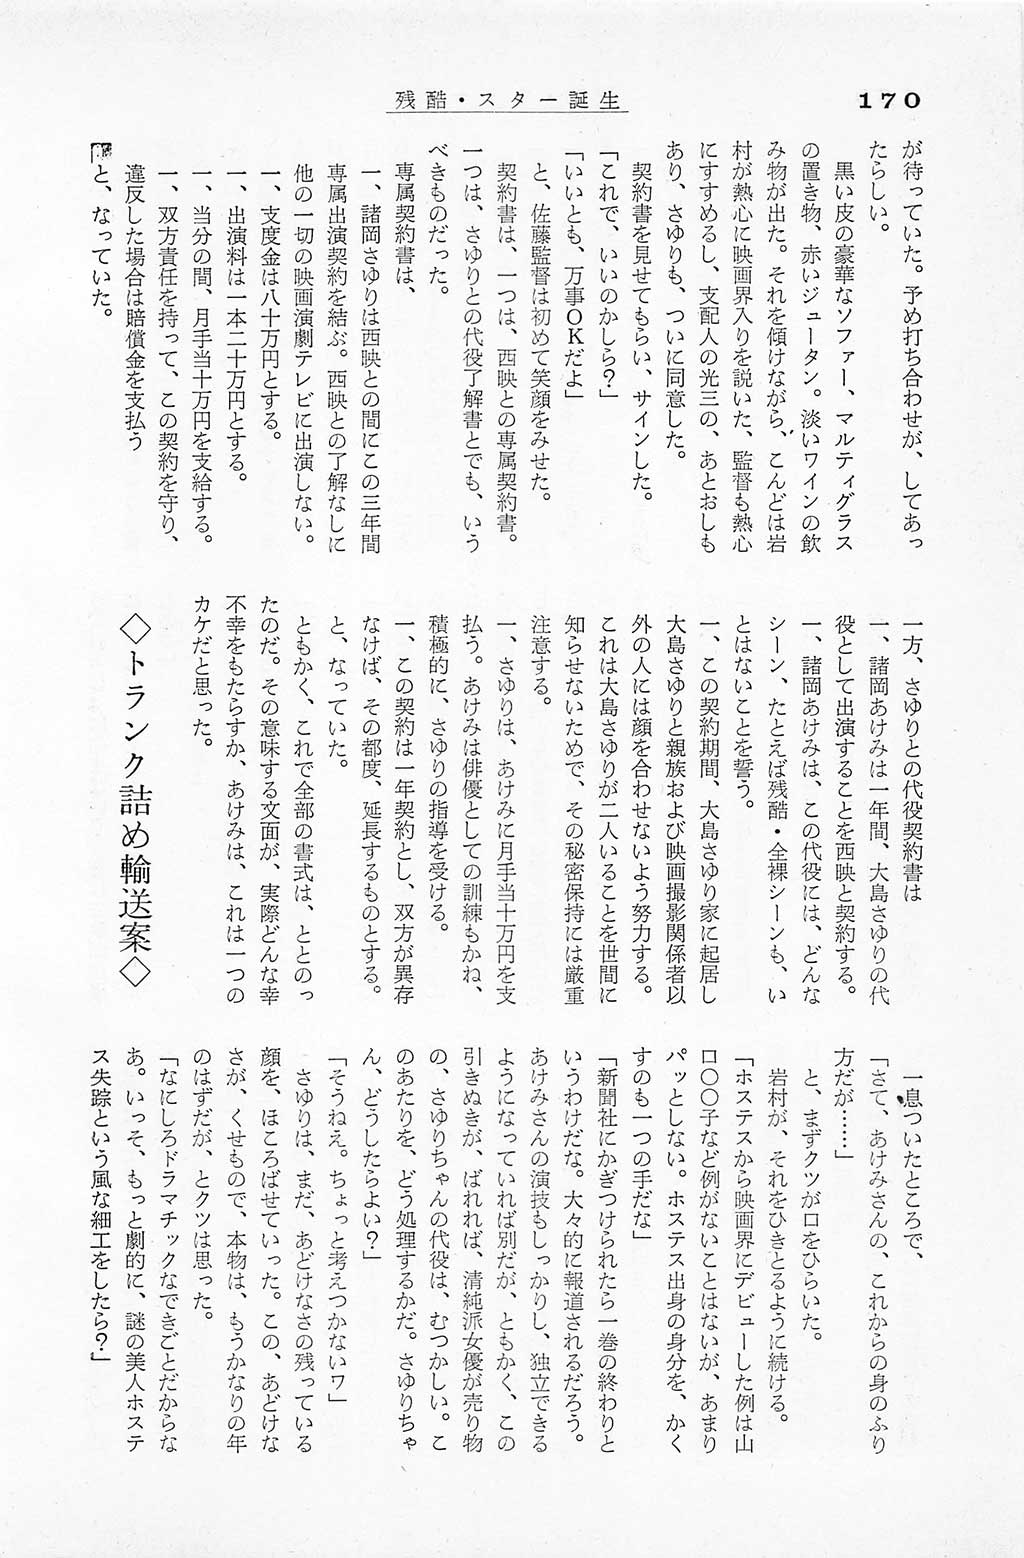 170
残酷・スター誕生
が待っていた。予め打ち合わせが、してあっ
たらしい。
黒い皮の豪華なソファー、マルティグラス
の置き物、赤いジュータン。淡いワインの飲
み物が出た。それを傾けながら、こんどは岩
村が熱心に映画界入りを説いた、監督も熱心
にすすめるし、支配人の光三の、あとおしも
あり、さゆりも、ついに同意した。
契約書を見せてもらい、サインした。
「これで、いいのかしら？」
「いいとも、万事OKだよ」
と、佐藤監督は初めて笑顔をみせた。
契約書は、一つは、西映との専属契約書。
一つは、さゆりとの代役了解書とでも、いう
べきものだった。
専属契約書は、
一、諸岡さゆりは西映との間にこの三年間
専属出演契約を結ぶ。西映との了解なしに
他の一切の映画演劇テレビに出演しない。
一、支度金は八十万円とする。
一、出演料は一本二十万円とする。
一、当分の間、月手当十万円を支給する。
一、双方責任を持って、この契約を守り、
違反した場合は賠償金を支払う
と、なっていた。
一方、さゆりとの代役契約書は
一、諸岡あけみは一年間、大島さゆりの代
役として出演することを西映と契約する。
一、諸岡あけみは、この代役には、どんな
シーン、たとえば残酷・全裸シーンも、い
とはないことを誓う。
一、この契約期間、大島さゆり家に起居し
大島さゆりと親族および映画撮影関係者以
外の人には顔を合わせないよう努力する。
これは大島さゆりが二人いることを世間に
知らせないためで、その秘密保持には厳重
注意する。
一、さゆりは、あけみに月手当十万円を支
払う。あけみは俳優としての訓練もかね、
積極的に、さゆりの指導を受ける。
一、この契約は一年契約とし、双方が異存
なければ、その都度、延長するものとする。
と、なっていた。
ともかく、これで全部の書式は、ととのっ
たのだ。その意味する文面が、実際どんな幸
不幸をもたらすか、あけみは、これは一つの
カケだと思った。
◇トランク詰め輸送案◇
一息ついたところで、
「さて、あけみさんの、これからの身のふり
方だが……」
と、まずクツが口をひらいた。
岩村が、それをひきとるように続ける。
「ホステスから映画界にデビューした例は山
口〇〇子など例がないことはないが、あまり
パッとしない。ホステス出身の身分を、かく
すのも一つの手だな」
「新聞社にかぎつけられたら一巻の終わりと
いうわけだな。大々的に報道されるだろう。
あけみさんの演技もしっかりし、独立できる
ようになっていれば別だが、ともかく、この
引きぬきが、ばれれば、清純派女優が売り物
の、さゆりちゃんの代役は、むつかしい。こ
のあたりを、どう処理するかだ。さゆりちゃ
ん、どうしたらよい？」
「そうねえ。ちょっと考えつかないワ」
さゆりは、まだ、あどけなさの残っている
顔を、ほころばせていった。この、あどけな
さが、くせもので、本物は、もうかなりの年
のはずだが、とクツは思った。
「なにしろドラマチックなできごとだからな
あ。いっそ、もっと劇的に、謎の美人ホステ
ス失踪という風な細工をしたら？」